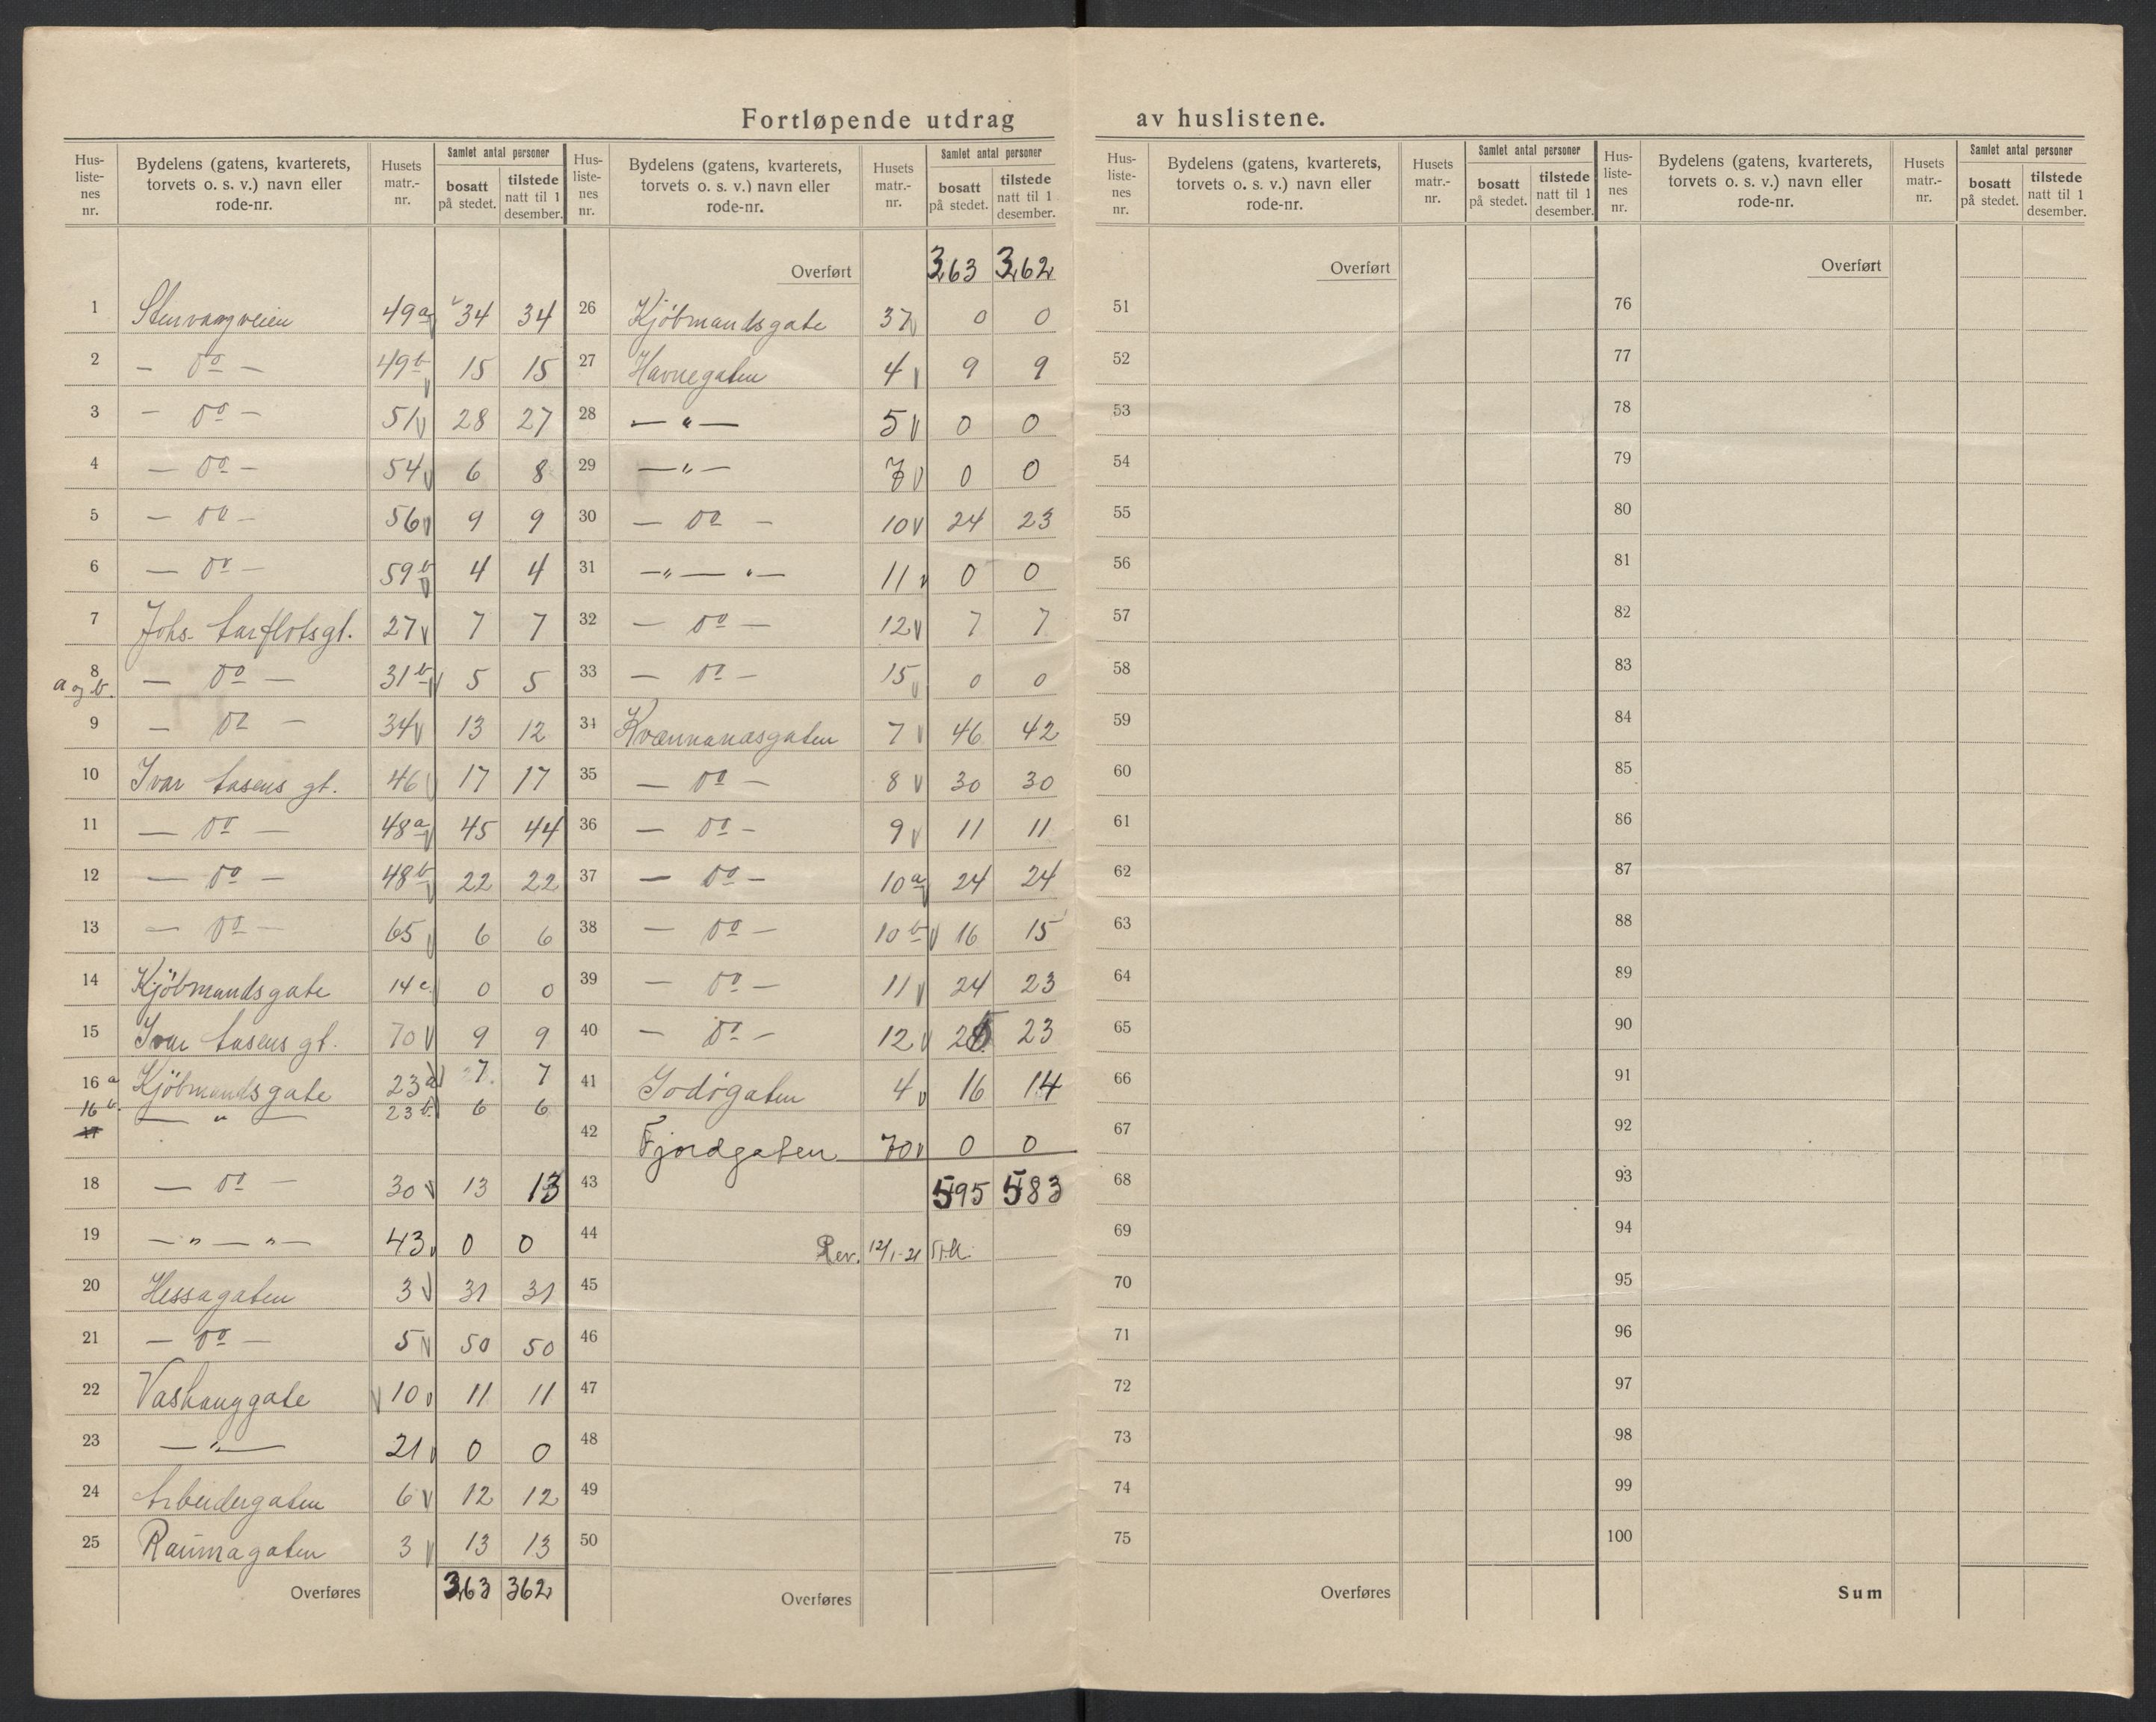 Fortløpende utdrag av huslistene.
Hus-listenes nr. | Bydelens (gatens, kvarterets, torvets o. s. v.) navn eller rode-nr. | Husets matr.-nr. | Samlet antal personer bosatt på stedet. | tilstede natt til 1 desember.
1 Stenvaagveien 49a 34 34
2 — do — 49b 15 15
3 — do — 51 28 27
4 — do — 54 6 8
5 — do — 56 9 9
6 — do — 59b 4 4
7 Johs. Aarflotsgt. 27 7 7
8 a og b. — do — 31b 5 5
9 — do — 34 13 12
10 Ivar Aasens gt. 46 17 17
11 — do — 48a 45 44
12 — do — 48b 22 22
13 — do — 65 6 6
14 Kjöbmandsgate 14c 0 0
15 Ivar Aasens gt. 70 9 9
16 a Kjöbmandsgate 23a 7 7
16 b. — " — 23b. 6 6
17
18 — do — 30 13 13
19 — " — " — 43 0 0
20 Hessagaten 3 31 31
21 — do — 5 50 50
22 Vashauggate 10 11 11
23 — " — 21 0 0
24 Arbeidergaten 6 12 12
25 Raumagaten 3 13 13
Overføres 363 362
Hus-listenes nr. | Bydelens (gatens, kvarterets, torvets o. s. v.) navn eller rode-nr. | Husets matr.-nr. | Samlet antal personer bosatt på stedet. | tilstede natt til 1 desember.
Overført 363 362
26 Kjöbmandsgate 37 0 0
27 Havnegaten 4 9 9
28 — " — 5 0 0
29 — " — 7 0 0
30 — do — 10 24 23
31 — " — " — 11 0 0
32 — do — 12 7 7
33 — do — 15 0 0
34 Kvænnanæsgaten 7 46 42
35 — do — 8 30 30
36 — do — 9 11 11
37 — do — 10a 24 24
38 — do — 10b 16 15
39 — do — 11 24 23
40 — do — 12 25 23
41 Godögaten 4 16 14
42 Fjordgaten 70 0 0
43 595 583
44 Rev. 12/1-21
45
46
47
48
49
50
Overføres
Hus-listenes nr. | Bydelens (gatens, kvarterets, torvets o. s. v.) navn eller rode-nr. | Husets matr.-nr. | Samlet antal personer bosatt på stedet. | tilstede natt til 1 desember.
Overført
51
52
53
54
55
56
57
58
59
60
61
62
63
64
65
66
67
68
69
70
71
72
73
74
75
Overføres
Hus-listenes nr. | Bydelens (gatens, kvarterets, torvets o. s. v.) navn eller rode-nr. | Husets matr.-nr. | Samlet antal personer bosatt på stedet. | tilstede natt til 1 desember.
Overført
76
77
78
79
80
81
82
83
84
85
86
87
88
89
90
91
92
93
94
95
96
97
98
99
100
Sum